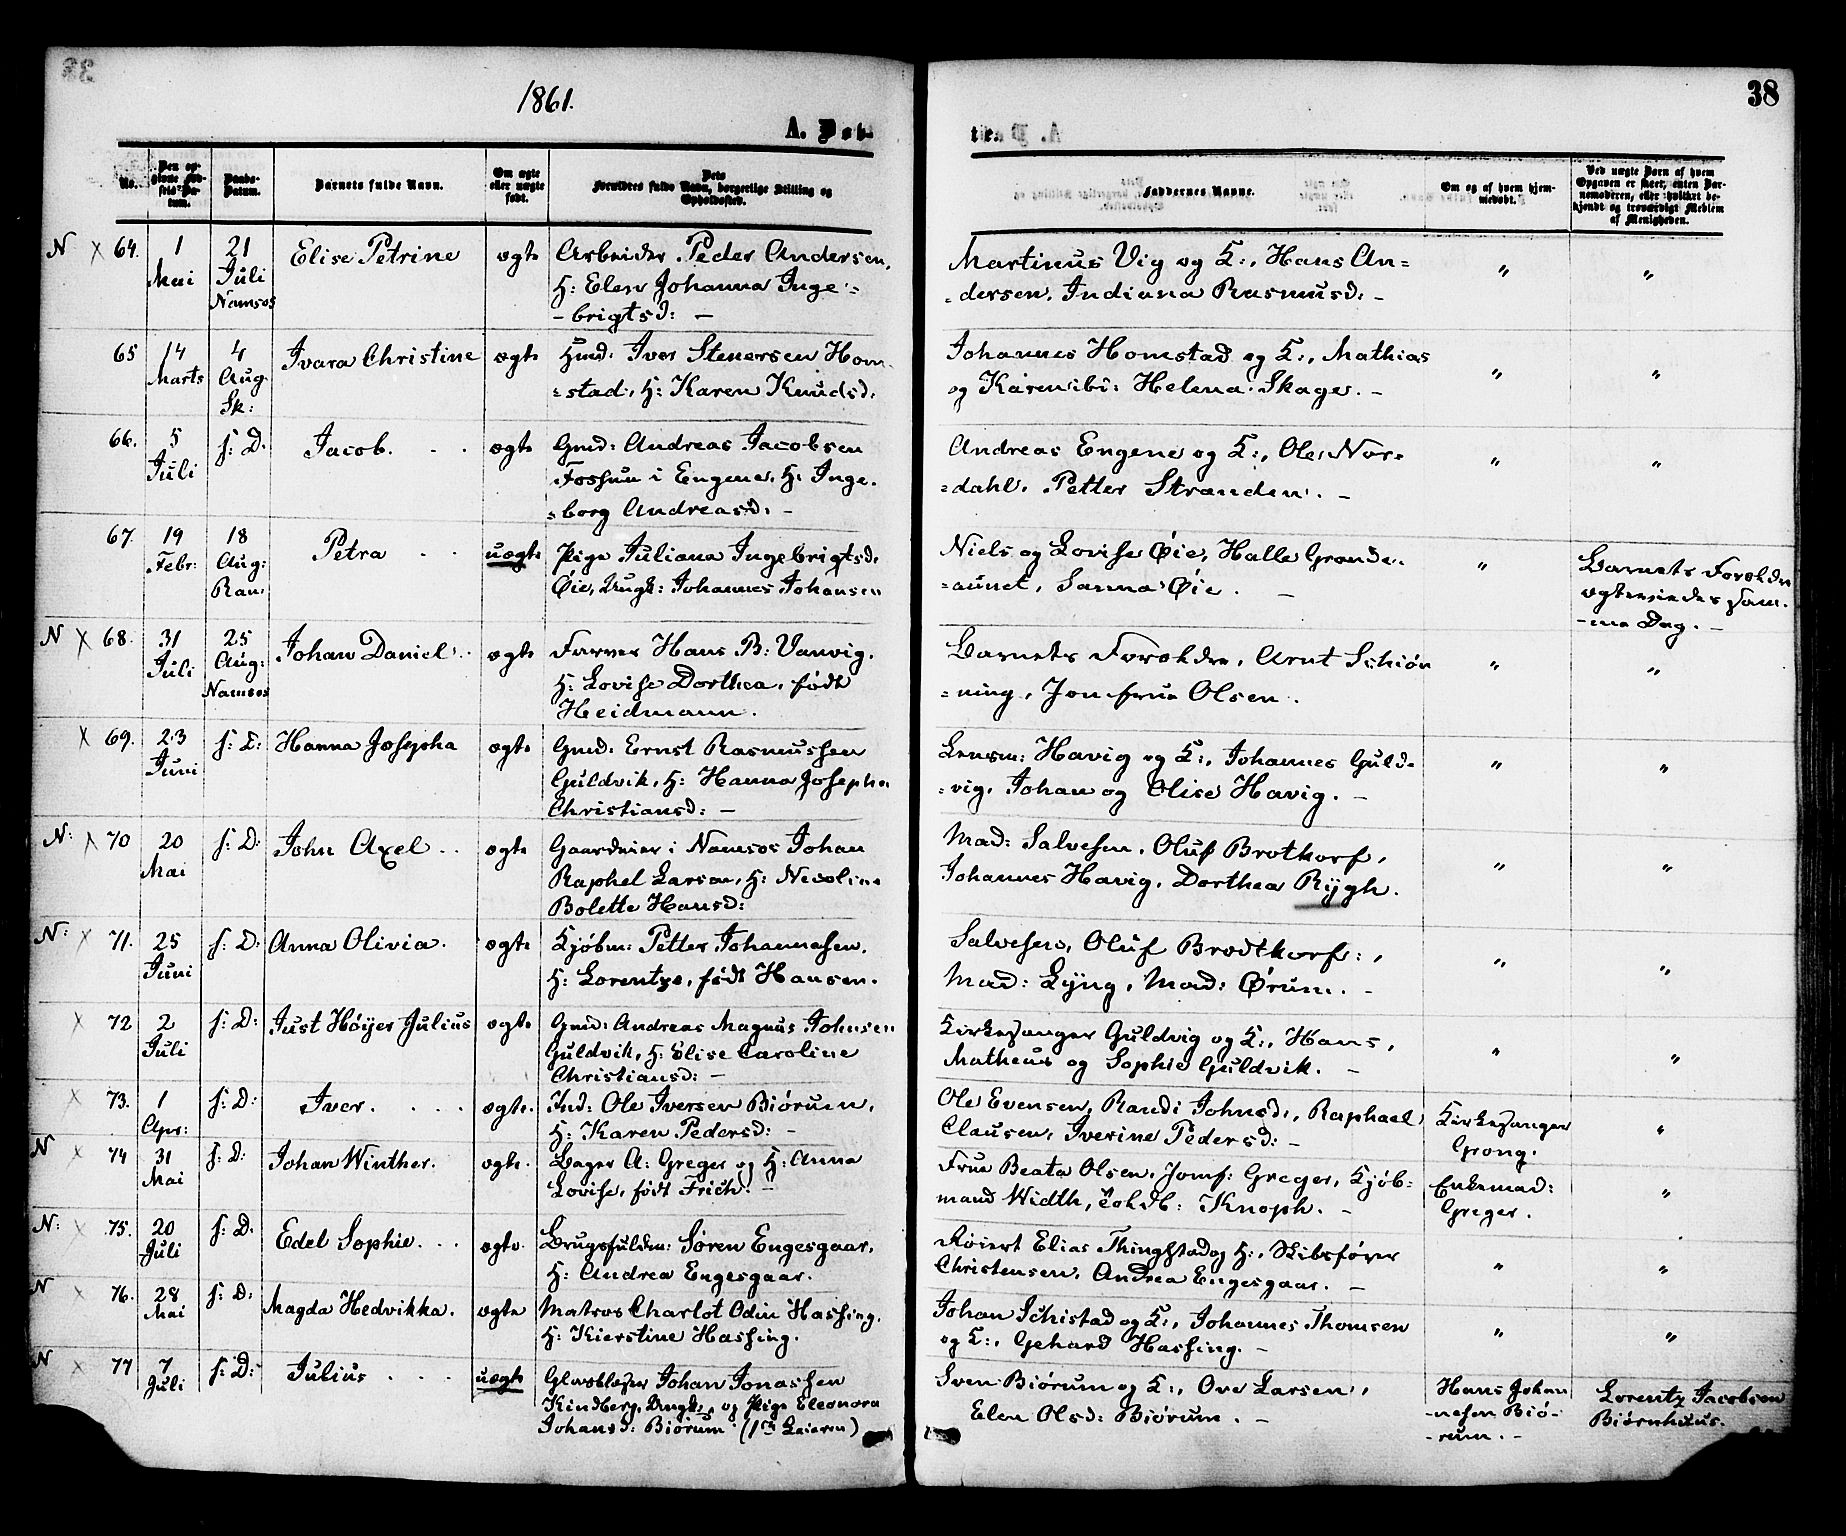 1861.
38
A. Døb-
te
No.
Den op-
givne Fød-
sels-Da-
tum.
Daabs-
Datum.
Barnets fulde Navn.
Om ægte
eller uægte
født.
Dets
Forældres fulde Navn, borgerlige Stilling og
Opholdssted.
Faddernes Navne.
Om og af hvem hjem-
medøbt.
Ved uægte Børn af hvem
Opgaven er skeet, enten Bar-
nemoderen, eller hvilket be-
kjendt og troværdigt Medlem
af Menigheden.
N × 64. 1 Mai 21 Juli Namsos Elise Petrine ægte Arbeider Peder Andersen,
H: Elen Johanna Inge=
-brigtsd: —
Martinus Vig og K:, Hans An=
=dersen, Indiana Rasmusd: — " "
65 14 Marts 4 Aug Sk: Ivara Christine ægte Hmd: Iver Stenersen Hom-
=stad, H: Karen Knudsd.
Johannes Homstad og K:, Mathias
og Karen ibd: Helena Skage. — " "
66. 5 Juli s: D: Jacob. ægte Gmd: Andreas Jacobsen
Fossum i Engene, H. Inge-
=borg Andreasd: —
Andreas Engene og K:, Ole Nor-
=dahl, Petter Stranden. — " "
67. 19 Febr: 18 Aug: Ran. Petra uægte Pige Juliana Ingebrigtsd.
Øie, Ungk: Johannes Johansen
Niels og Lovise Øie, Halle Grande-
=aunet, Sanna Øie. — "
Barnets Forældre
ægteviedes sam-
-me Dag. —
N × 68. 31 Juli 25 Aug: Namsos Johan Daniel ægte Farver Hans B: Vanvig,
H: Lovise Dorthea, født
Heidmann.
Barnets Forældre, Arnt Schiøn
=ning, Jomfrue Olsen. " "
× 69. 23 Juni s: D: Hanna Josepha ægte Gmd: Ernst Rasmussen
Guldvik, H: Hanna Josepha
Christiansd: —
Lensm: Havig og K:, Johannes Guld-
=vig, Johan og Olise Havig. — " "
N: × 70 20 Mai s: D: John Axel ægte Gaardeier i Namsos Johan
Raphel Larsen, H: Nicoline
Bolette Hansd:
Mad: Salvesen, Oluf Brotkorf,
Johannes Havig, Dorthea Rÿgh. " "
N: × 71. 25 Juni s: D: Anna Olivia. ægte Kjøbm: Petter Johannesen,
H: Lorentze, født Hansen.
Salvesen, Oluf Brodtkorf:,
Mad: Lÿng, Mad: Ørum. — " "
× 72 2 Juli s: D: Just Höÿer Julius ægte Gmd: Andreas Magnus Johnsen
Guldvik, H: Elise Caroline
Christiansd: —
Kirkesanger Guldvig og K:, Hans,
Matheus og Sophie Guldvik. — " "
× 73. 1 Apr: s: D: Iver. ægte. Ind: Ole Iversen Biörum,
H: Karen Pedersd: —
Ole Evensen, Randi Johnsd:, Raphael
Clausen, Iverine Pedersd: —
Kirkesanger
Grong. "
N × 74 31 Mai s: D: Johan Winther. ægte. Bager A: Greger og H: Anna
Lovise, født Frich. —
Frue Beata Olsen, Jomf: Greger, Kjöb-
mand Width, Knoph. —
Enkemad:
Greger. "
N: × 75. 20 Juli s: D: Edel Sophie. ægte. Brugsfuldm: Sören Engesgaar,
H: Andrea Engesgaar.
Elias Thingstad og H:, Skibsfører
Christensen, Andrea Engesgaar. — " "
N × 76. 28 Mai s: D: Magda Hedvikka. ægte Matros Charlot Odin Hassing,
H: Kierstine Hassing.
Johan Schistad og K:, Johannes Thomsen
og K:, Gehard Hassing. — " "
N × 77 7 Juli s: D: Julius uægte Glasblæser Johan Jonassen
Kindberg, Ungk:, og Pige Eleonora
Johansd: Biörum (1ste Leierm)
Sven Biörum og K:, Ove Larsen,
Elen Olsd: Biörum. —
Hans Johan
-nesen Biö-
-rum. —
Lorentz Jacobsen
Biörnhuus.